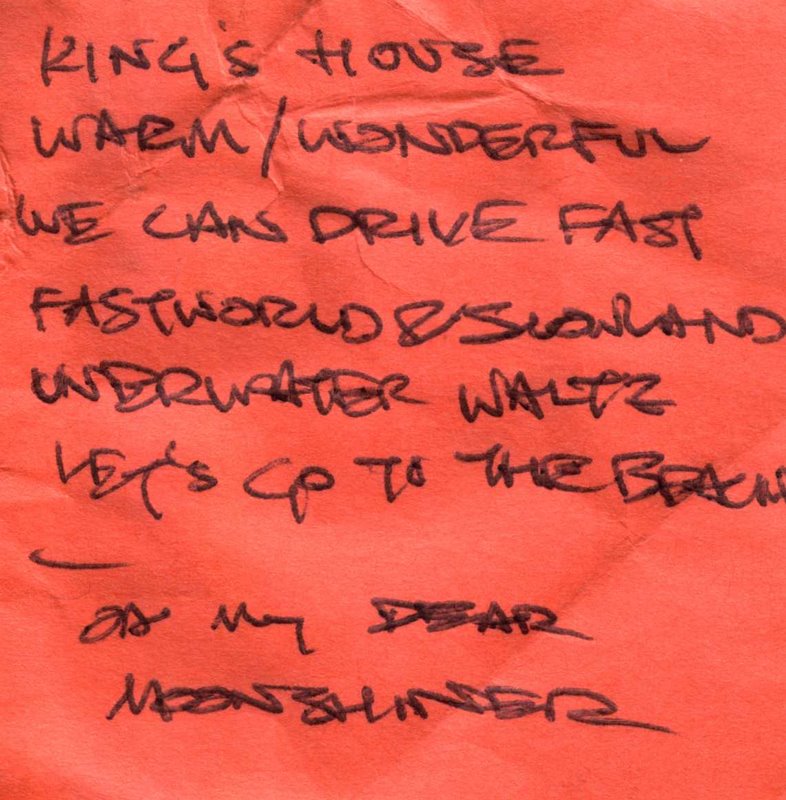 KING'S HOUSE
WARM/WONDERFUL
WE CAN DRIVE FAST
FASTWORLD & SLOWLAND
UNDERWATER WALTZ
LET'S GO TO THE BEACH
—
OH MY DEAR
MOONSHINER